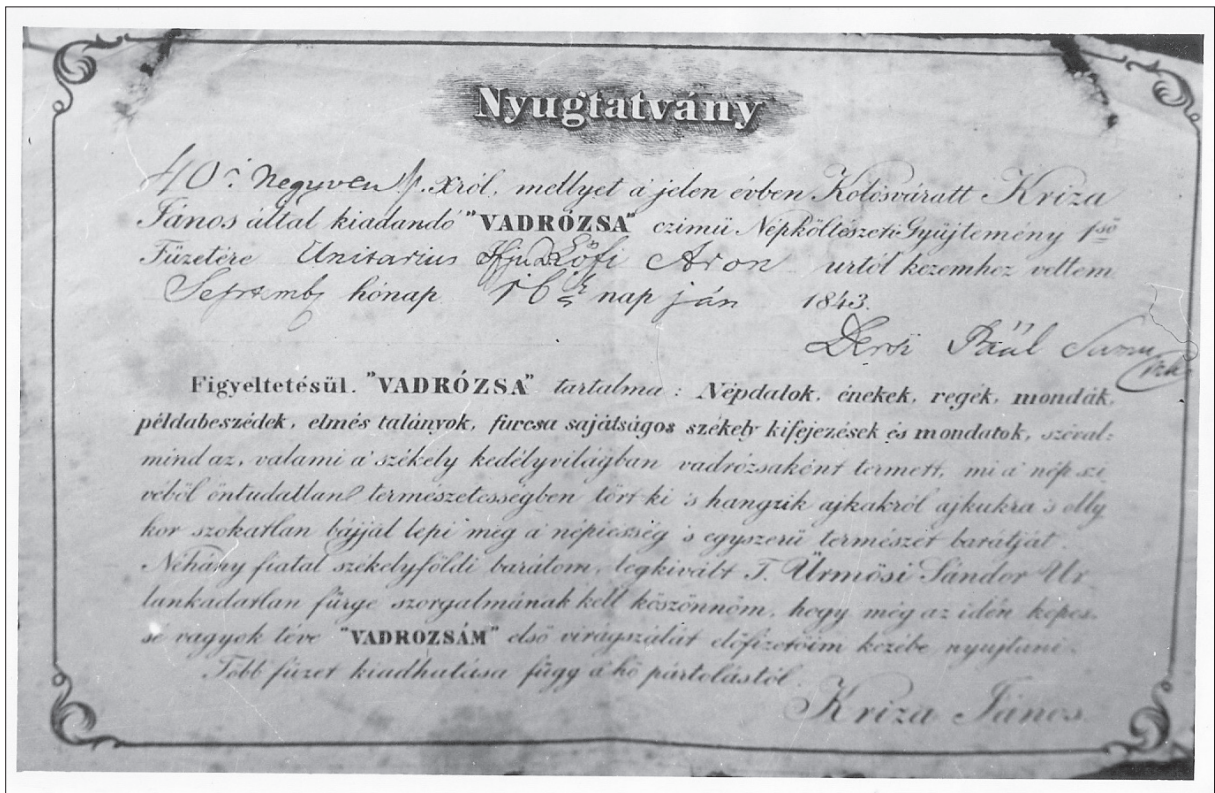 Nyugtatvány
40 : Negyven p. xról, mellyet a' jelen évben Kolosváratt Kriza
János által kiadandó "VADRÓZSA" czimü Népköltészeti Gyüjtemény 1ső
Füzetére Unitarius Ifju Lőfi Áron urtól kezemhez vettem
Septemb hónap 16 nap ján 1843.
Dersi Pál
Figyeltetésül. "VADRÓZSA" tartalma : Népdalok, énekek, regék, mondák,
példabeszédek, elmés talányok, furcsa sajátságos székely kifejezések és mondatok, szóval:
mind az, valami a' székely kedélyvilágban vadrózsaként termett, mi a' nép szi
véből öntudatlan természetességben tört ki 's hangzik ajkakról ajkukra 's olly
kor szokatlan bájjal lepi meg a' népiesség 's egyszerü természet barátját.
Néhány fiatal székelyföldi barátom, legkivált T. Ürmösi Sándor Ur
lankadatlan fürge szorgalmának kell köszönnöm, hogy még az idén képes-
sé vagyok téve "VADROZSÁM" első virágszálát előfizetőim kezébe nyujtani.
Több füzet kiadhatása függ a' hő pártolástól.
Kriza János